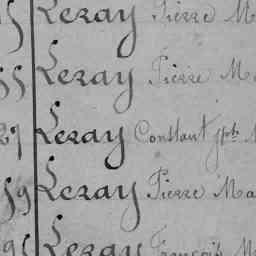 Leray Pierre Ma
55 Leray Pierre Ma
27 Leray Constant Jph
59 Leray Pierre Ma
95 Leray François M